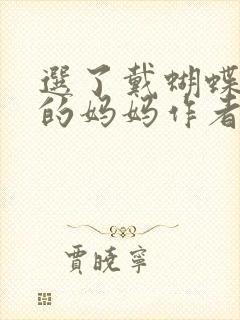 選了戴蝴蝶
的妈妈作者
賈曉寧